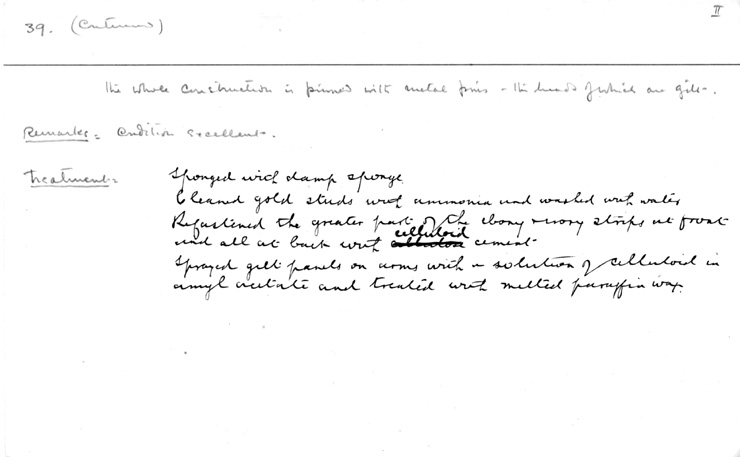 II
39. (Continued)
The whole construction is pinned with metal pins - the heads of which are gilt.
Remarks = Condition excellent.
Treatment = Sponged with damp sponge.
Cleaned gold studs with ammonia and washed with water
Refastened the greater part of the ebony & ivory strips at front
and all at back with celluloid cement
Sprayed gilt panels on arms with a solution of celluloid in
amyl acetate and treated with melted paraffin wax.